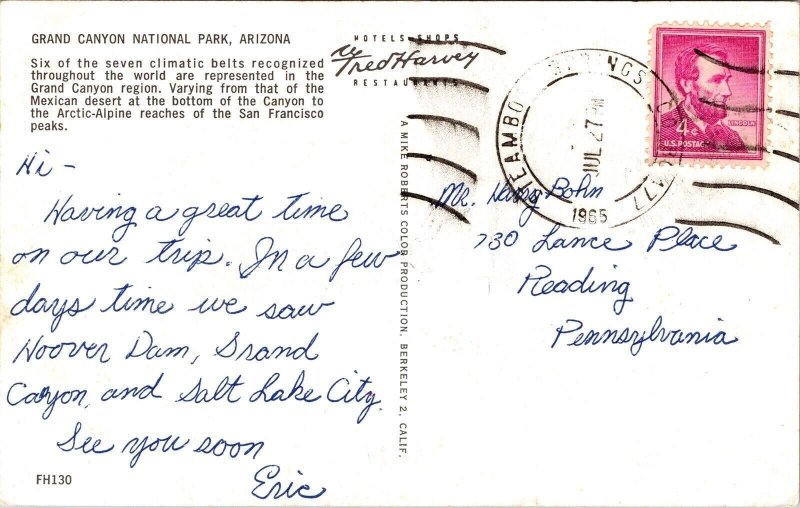 GRAND CANYON NATIONAL PARK, ARIZONA
Six of the seven climatic belts recognized
throughout the world are represented in the
Grand Canyon region. Varying from that of the
Mexican desert at the bottom of the Canyon to
the Arctic-Alpine reaches of the San Francisco
peaks.
Hi -
Having a great time
on our trip. In a few
days time we saw
Hoover Dam, Grand
Canyon, and Salt Lake City.
See you soon
Eric
FH130
HOTELS SHOPS
Fred Harvey
RESTAURANTS
A MIKE ROBERTS COLOR PRODUCTION, BERKELEY 2, CALIF.
JUL 27
1965
LINCOLN
4¢
U.S. POSTAGE
Mr. Harry Bohn
730 Lance Place
Reading
Pennsylvania